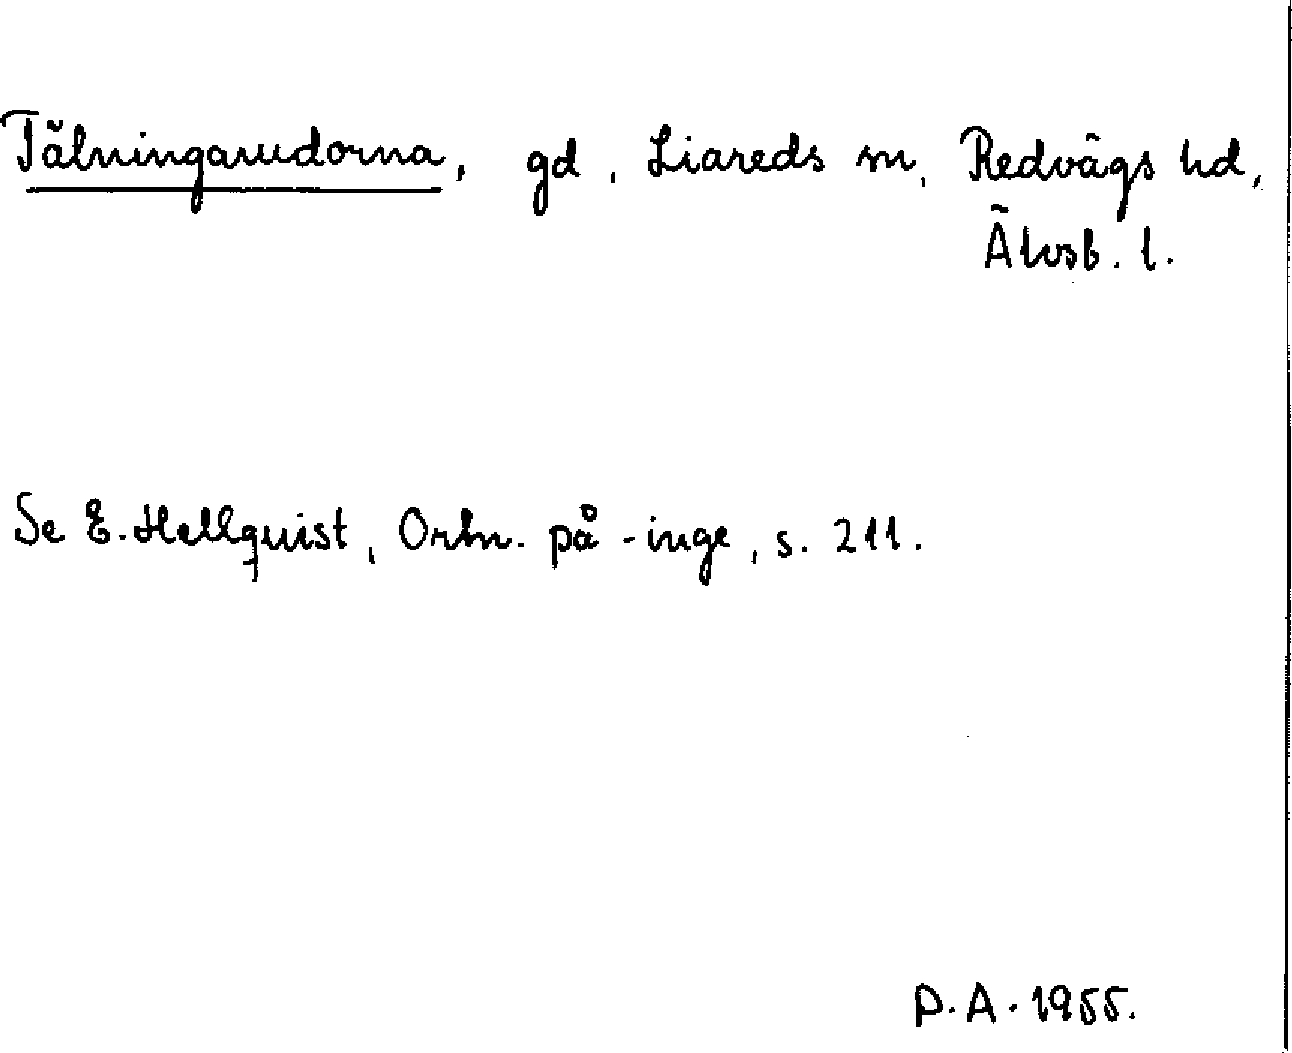 Tälningarudorna, gd, Liareds sn, Redvägs hd,
Älvsb. l.
Se E. Hellquist, Ortn. på -inge, s. 211.
P.A. 1955.